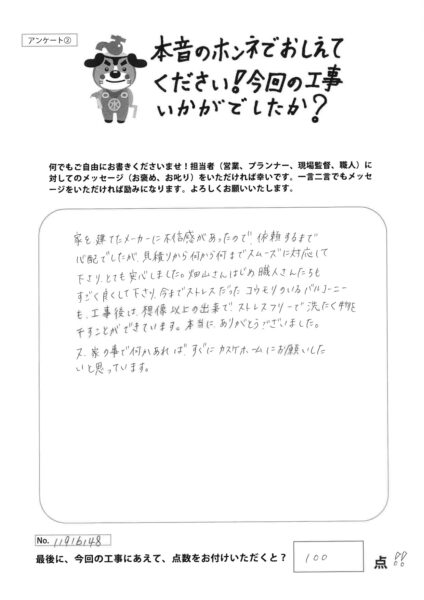 アンケート②
本音のホンネでおしえて
ください!今回の工事
いかがでしたか?
何でもご自由にお書きくださいませ!担当者(営業、プランナー、現場監督、職人)に
対してのメッセージ(お褒め、お叱り)をいただければ幸いです。一言二言でもメッセ
ージをいただければ励みになります。よろしくお願いいたします。
家を建てたメーカーに不信感があったので、依頼するまで
心配でしたが、見積りから何から何までスムーズに対応して
下さり、とても安心しました。畑山さんはじめ職人さんたちも
すごく良くして下さり、今までストレスだったコウモリのいるバルコニー
も、工事後は、想像以上の出来で、ストレスフリーで洗たく物を
干すことができています。本当にありがとうございました。
又、家の事で何かあれば、すぐにカスケホームにお願いした
いと思っています。
No. 11916148
最後に、今回の工事にあえて、点数をお付けいただくと? 100 点!!